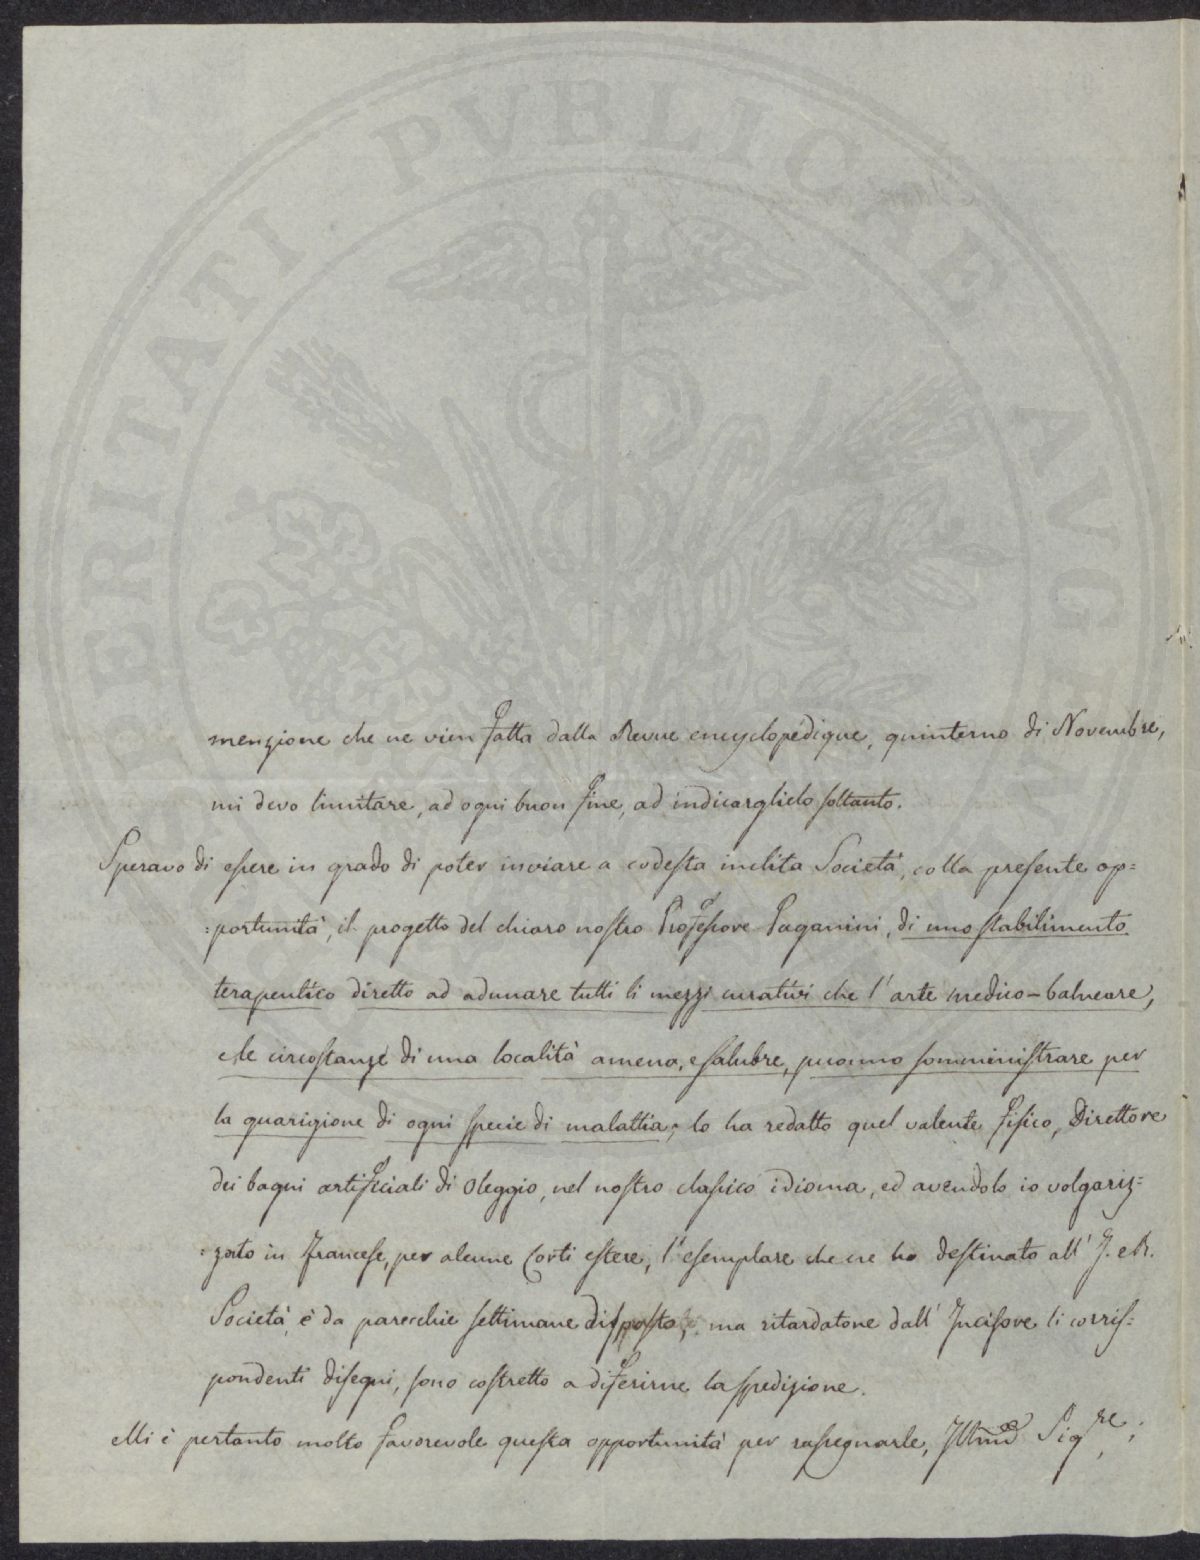 menzione che ne vien fatta dalla Revue encyclopédique, quinterno di Novembre,
mi devo limitare, ad ogni buon fine, ad indicarglielo soltanto.
Speravo di essere in grado di poter inviare a codesta inclita Società, colla presente op=
=portunità, il progetto del chiaro nostro Professore Paganini, di uno stabilimento
terapeutico diretto ad adunare tutti li mezzi curativi che l'arte medico-balneare,
e le circostanze di una località amena, e salubre, puonno somministrare per
la guarigione di ogni specie di malattia; lo ha redatto quel valente fisico, Direttore
dei bagni artificiali di Oleggio, nel nostro classico idioma, ed avendolo io volgariz=
=zato in francese, per alcune Corti estere, l'esemplare che ne ho destinato all' I. e R.
Società, è da parecchie settimane disposto, ma ritardatone dall' Incisore li corris=
pondenti disegni, sono costretto a diferirne la spedizione.
Mi è pertanto molto favorevole questa opportunità per rassegnarle, Illmo Sigre,
PERITATI PVBLICAE AVGE